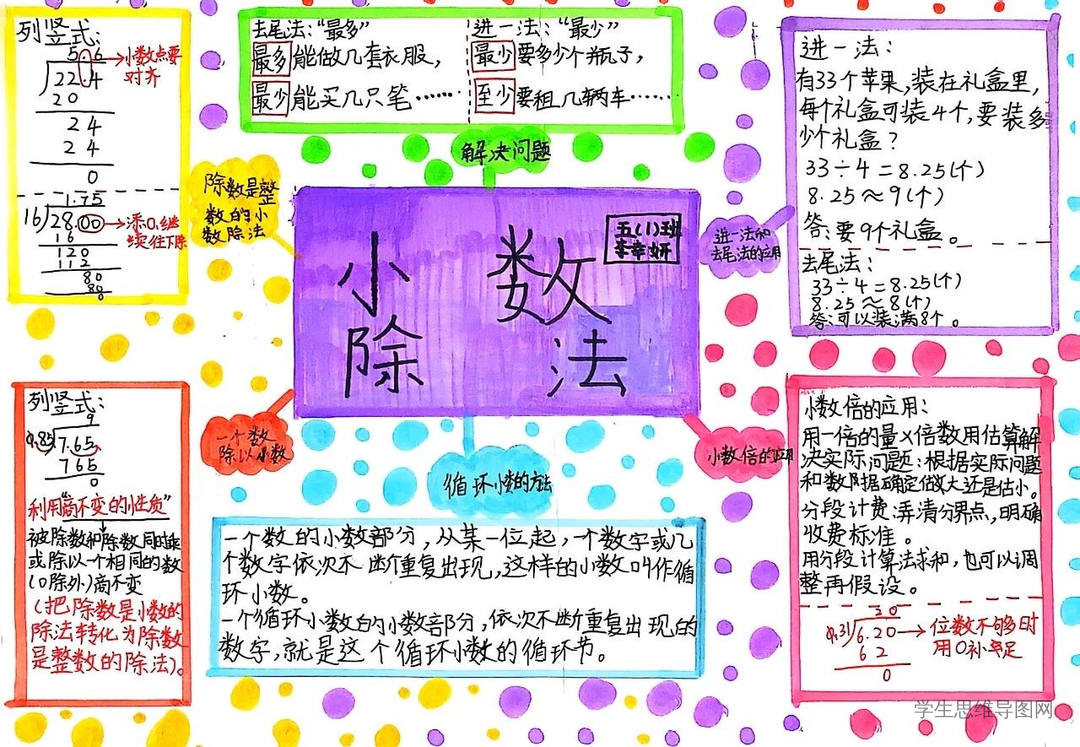 列竖式:
5.6
22.4
20
24
24
0
小数点要
对齐
1.75
16 28.00
16
120
112
80
80
0
添0,继
续往下除
除数是整
数的小
数除法
去尾法:“最多”
最多能做几套衣服,
最少能买几只笔……
进一法:“最少”
最少要多少个瓶子,
至少要租几辆车……
解决问题
小数
除法
五(1)班
进一法和
去尾法的应用
进一法:
有33个苹果,装在礼盒里,
每个礼盒可装4个,要装多
少个礼盒?
33÷4=8.25(个)
8.25≈9(个)
答:要9个礼盒。
去尾法:
33÷4=8.25(个)
8.25≈8(个)
答:可以装满8个。
列竖式:
9
0.85 7.65
765
0
利用“商不变的性质”
被除数和除数同时乘
或除以一个相同的数
(0除外)商不变
(把除数是小数的
除法转化为除数
是整数的除法)。
一个数
除以小数
循环小数的方法
一个数的小数部分,从某一位起,一个数字或几
个数字依次不断重复出现,这样的小数叫作循
环小数。
一个循环小数的小数部分,依次不断重复出现的
数字,就是这个循环小数的循环节。
小数倍的应用
小数倍的应用:
用一倍的量×倍数用估算解
决实际问题:根据实际问题
和数据确定估大还是估小。
分段计费:弄清分界点,明确
收费标准。
用分段计算法求和,也可以调
整再假设。
20
0.31 6.20
62
0
位数不够时
用0补足
学生思维导图网